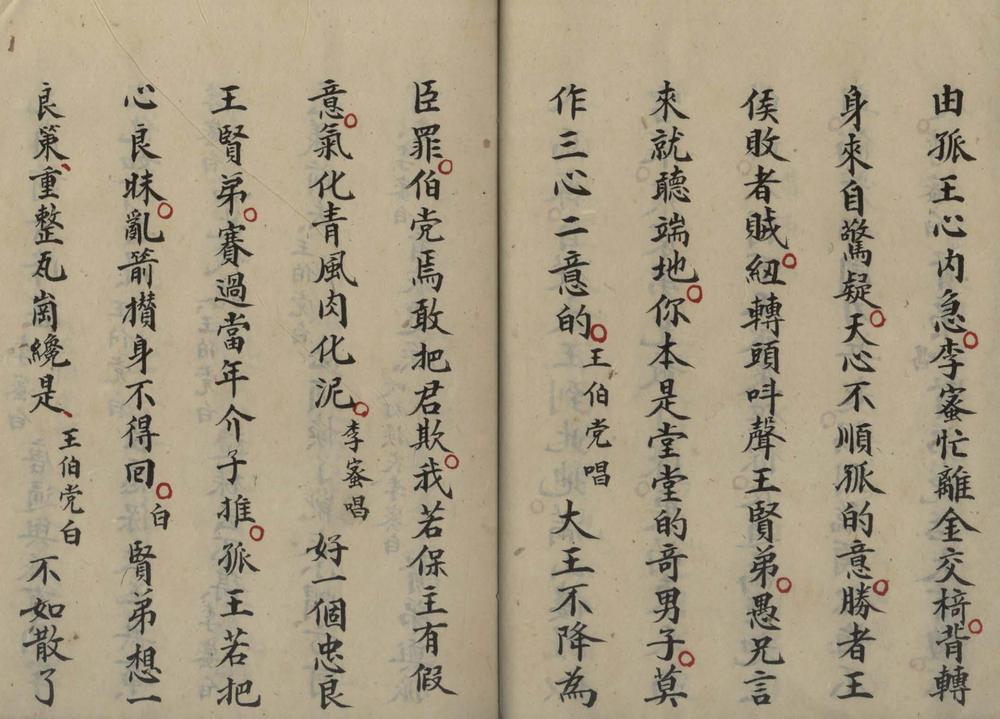 由孤王心内急。李宻忙離金交椅。背轉
身來自驚疑。天心不順孤的意。勝者王
侯敗者賊。紐轉頭呌聲王賢弟。愚兄言
來就聽端地。你本是堂堂的奇男子。莫
作三心二意的。王伯党唱 大王不降為
臣罪。伯党焉敢把君欺。我若保主有假
意。氣化青風肉化泥。李宻唱 好一個忠良
王賢弟。賽過當年介子推。孤王若把
心良昧。亂箭攅身不得回。白 賢弟想一
良策、重整瓦崗纔是、王伯党白 不如散了